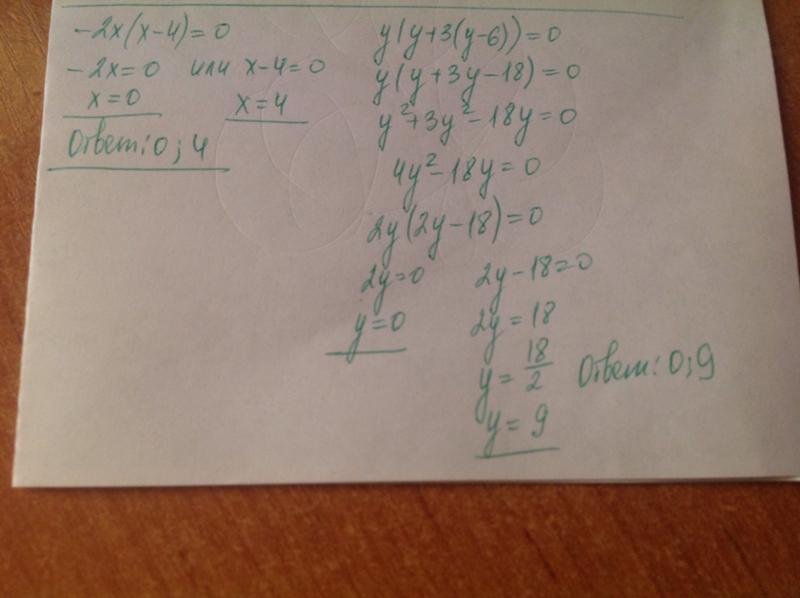 -2x(x-4)=0
-2x=0 или x-4=0
x=0 x=4
Ответ: 0; 4
y(y+3(y-6))=0
y(y+3y-18)=0
y²+3y²-18y=0
4y²-18y=0
2y(2y-18)=0
2y=0 2y-18=0
y=0 2y=18
y=18/2
y=9
Ответ: 0; 9